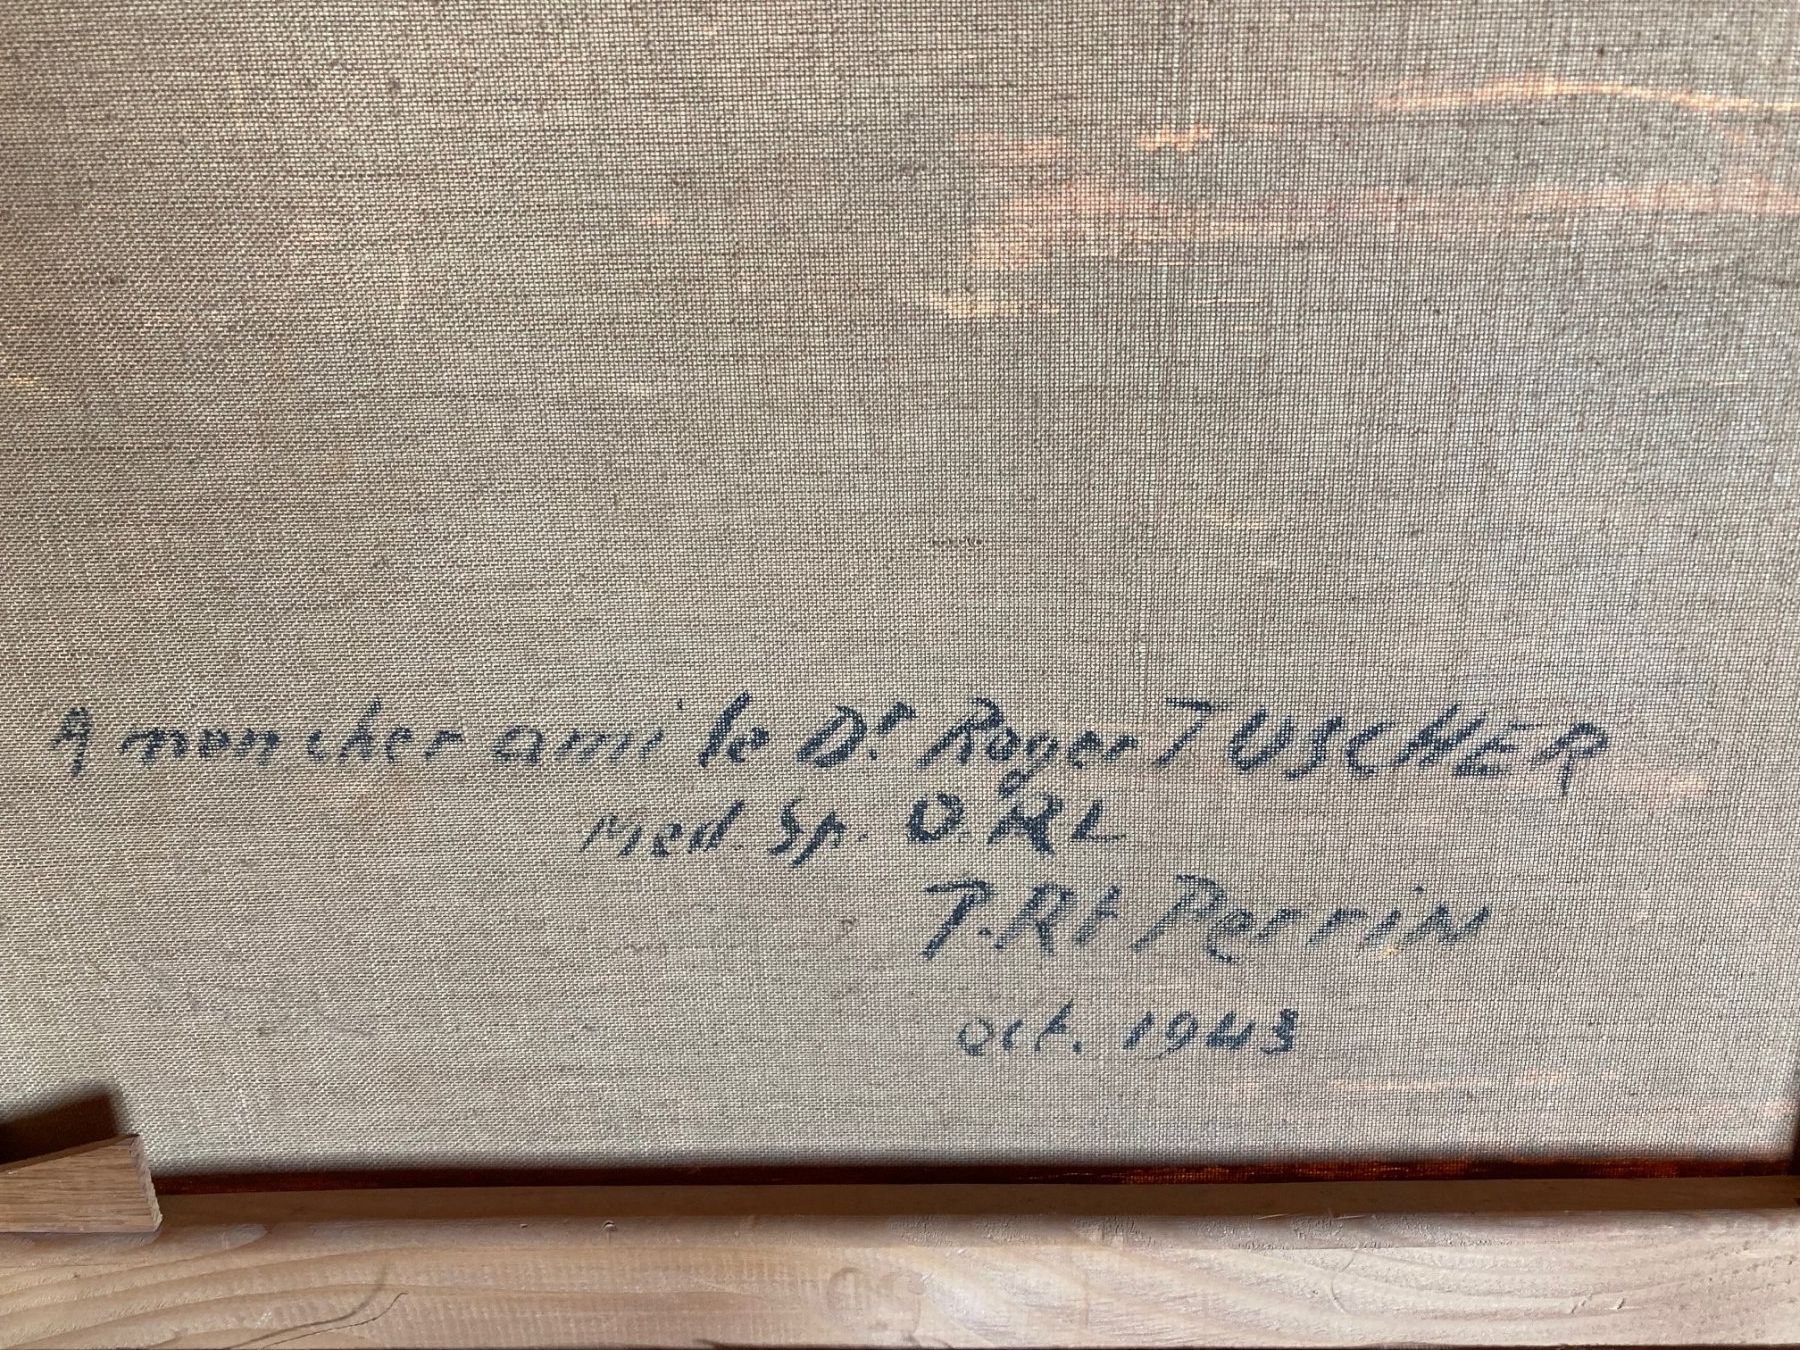 A mon cher ami le Dr Roger TUSCHER
Med. Sp. O.RL
P.Rt Perrin
oct. 1943